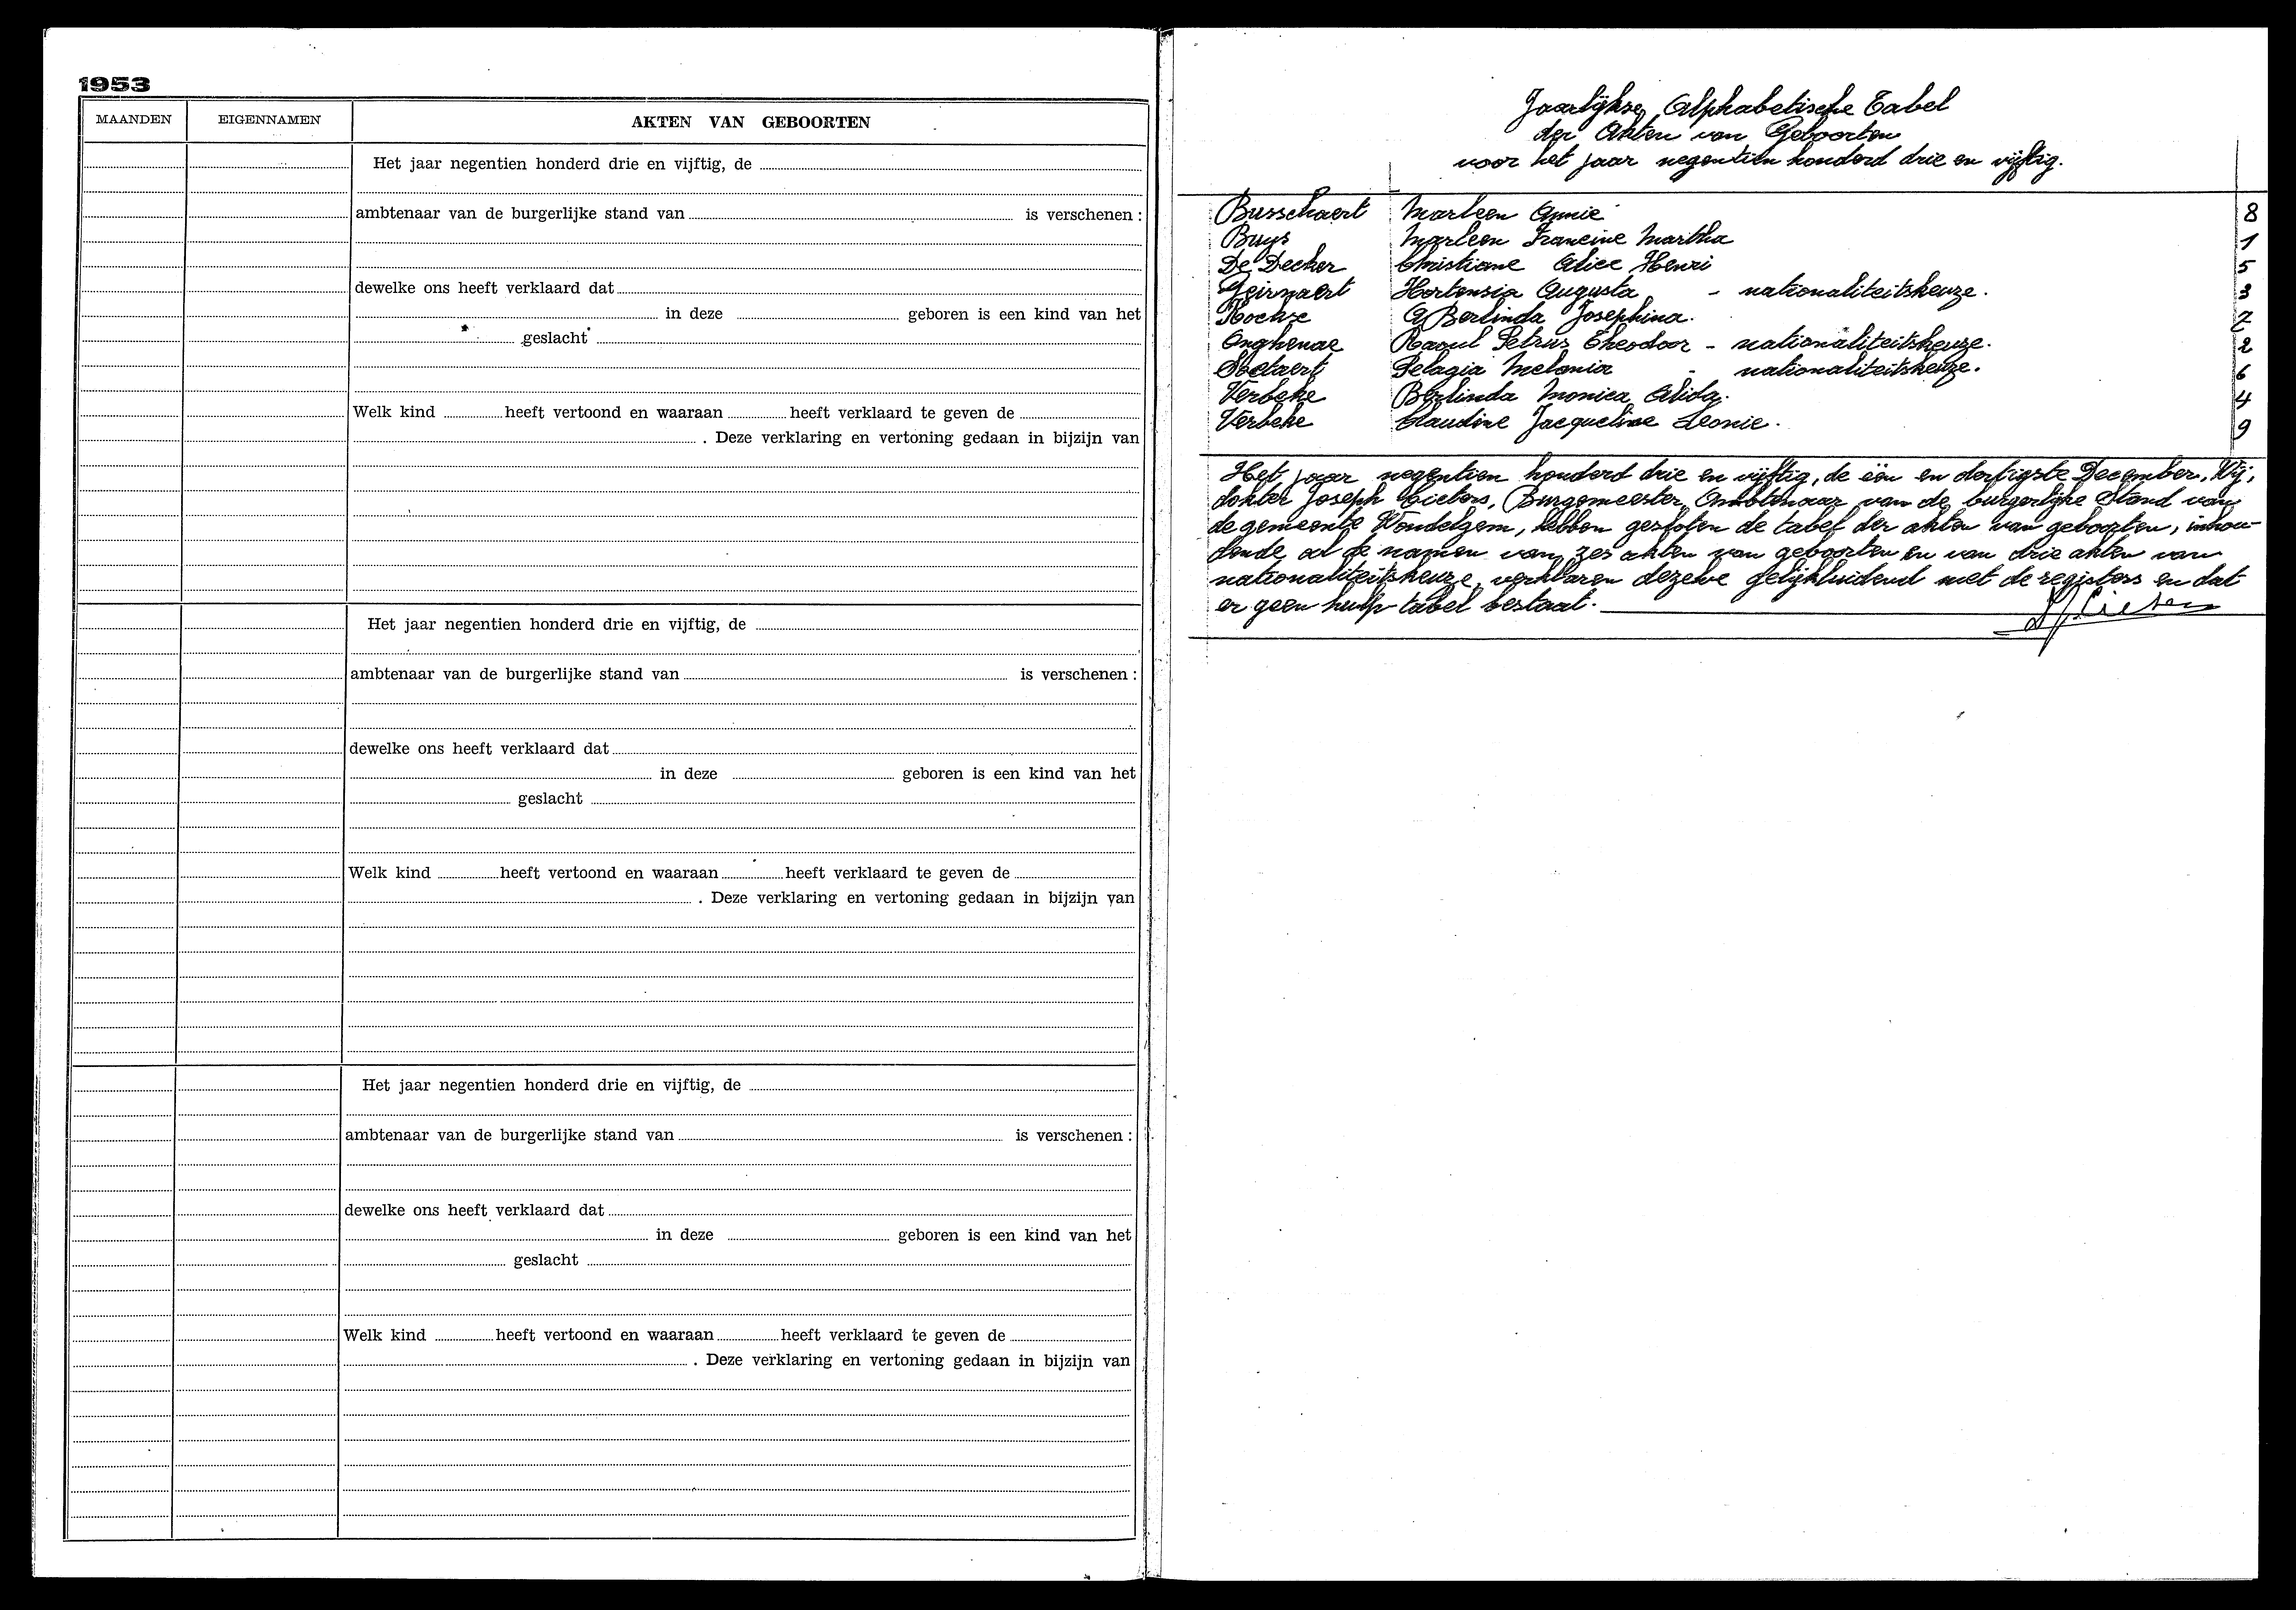 1953
MAANDEN EIGENNAMEN AKTEN VAN GEBOORTEN
Het jaar negentien honderd drie en vijftig, de
ambtenaar van de burgerlijke stand van is verschenen :
dewelke ons heeft verklaard dat
in deze geboren is een kind van het
geslacht
Welk kind heeft vertoond en waaraan heeft verklaard te geven de
. Deze verklaring en vertoning gedaan in bijzijn van
Het jaar negentien honderd drie en vijftig, de
ambtenaar van de burgerlijke stand van is verschenen :
dewelke ons heeft verklaard dat
in deze geboren is een kind van het
geslacht
Welk kind heeft vertoond en waaraan heeft verklaard te geven de
. Deze verklaring en vertoning gedaan in bijzijn van
Het jaar negentien honderd drie en vijftig, de
ambtenaar van de burgerlijke stand van is verschenen :
dewelke ons heeft verklaard dat
in deze geboren is een kind van het
geslacht
Welk kind heeft vertoond en waaraan heeft verklaard te geven de
. Deze verklaring en vertoning gedaan in bijzijn van
Jaarlijkse Alphabetische Tabel
der Akten van Geboorten
voor het jaar negentien honderd drie en vijftig.
Busschaert Marleen Annie 8
Buys Marleen Francine Martha 1
De Decker Christiane Alice Henri 5
Geirnaert Hortensia Augusta - nationaliteitskeuze. 3
Berlinda Josephina. 7
Onghenae Raoul Petrus Theodoor - nationaliteitskeuze. 2
Soetaert Pelagia Melania - nationaliteitskeuze. 6
Verbeke Berlinda Monica Alida. 4
Verbeke Claudine Jacqueline Leonie. 9
Het jaar negentien honderd drie en vijftig, de één en dertigste December, Wij,
dokter Joseph Burgemeester, Ambtenaar van de burgerlijke Stand van
de gemeente Wondelgem, hebben gesloten de tabel der akten van geboorten, inhou-
dende al de namen van zes akten van geboorten en van drie akten van
nationaliteitskeuze, verklaren dezelve gelijkluidend met de registers en dat
er geen hulp tabel bestaat.